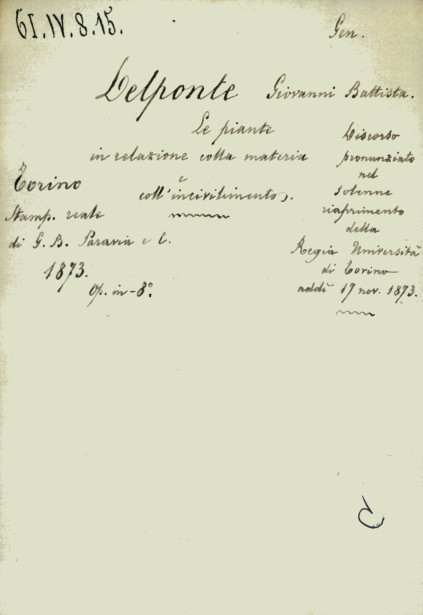 61.IV.8.15.
Gen.
Delponte Giovanni Battista.
Le piante
in relazione colla materia
e
coll'incivilimento.
Discorso
pronunziato
nel
solenne
riaprimento
della
Regia Università
di Torino
addì 17 nov. 1873.
Torino
Stamp. reale
di G. B. Paravia e C.
1873.
Op. in-8°.